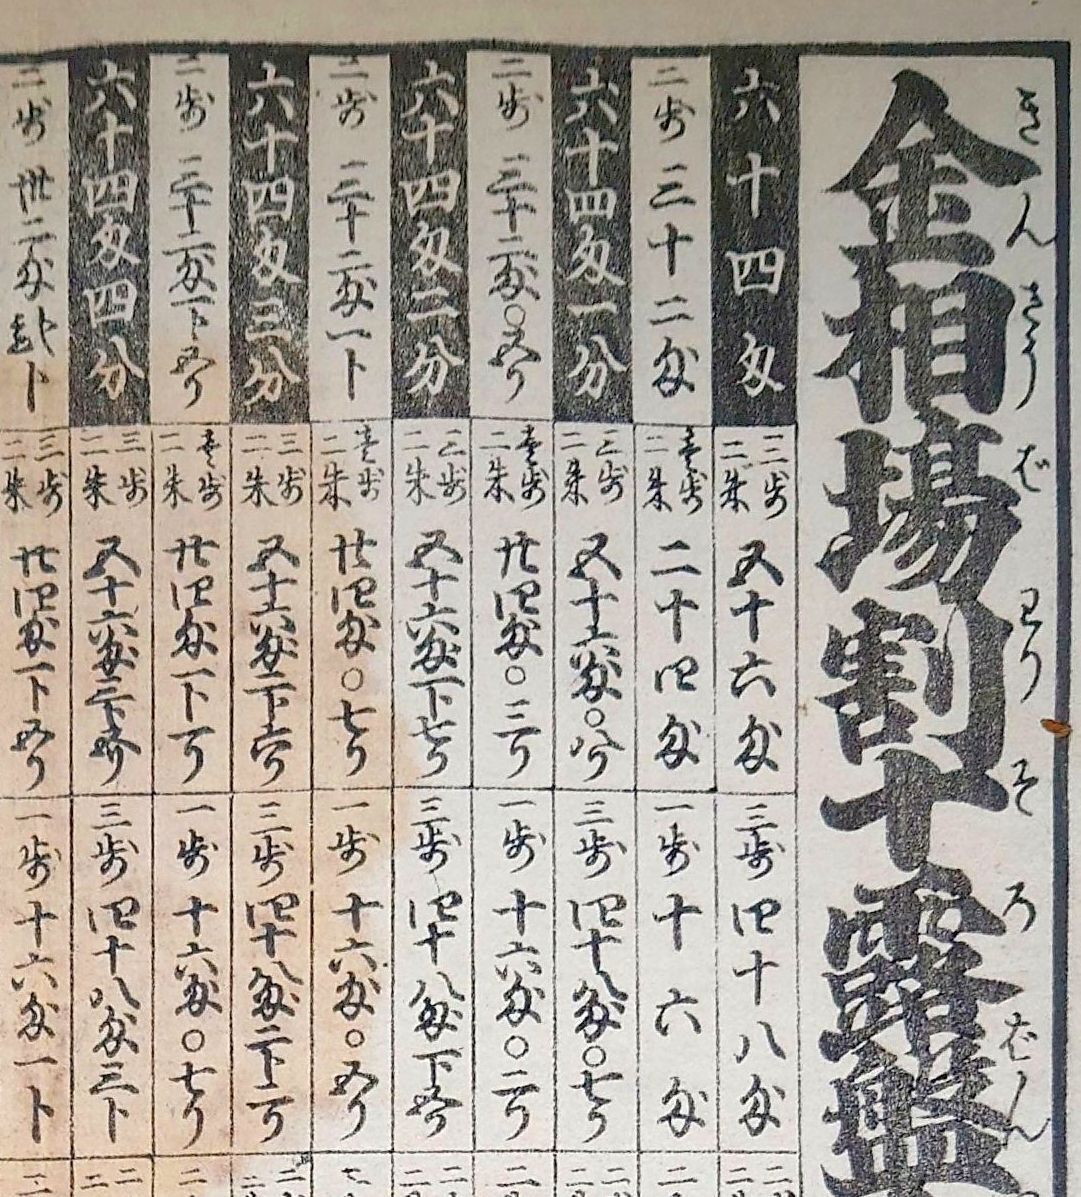 きんさうばわりそろばん
金相場割十露盤
六十四匁
三歩二朱 五十六匁
三歩 四十八匁
二歩 三十二匁
壱歩二朱 二十四匁
一歩 十六匁
六十四匁一分
三歩二朱 五十六匁〇八リ
三歩 四十八匁〇七リ
二歩 三十二匁〇五リ
壱歩二朱 廿四匁〇三リ
一歩 十六匁〇二リ
六十四匁二分
三歩二朱 五十六匁一卜七リ
三歩 四十八匁一卜五リ
二歩 三十二匁一卜
壱歩二朱 廿四匁〇七リ
一歩 十六匁〇五リ
六十四匁三分
三歩二朱 五十六匁二卜六リ
三歩 四十八匁二卜二リ
二歩 三十二匁一卜五リ
壱歩二朱 廿四匁一卜一リ
一歩 十六匁〇七リ
六十四匁四分
三歩二朱 五十六匁三卜五リ
三歩 四十八匁三卜
二歩 卅二匁弐卜
三歩二朱 廿四匁一卜五リ
一歩 十六匁一卜